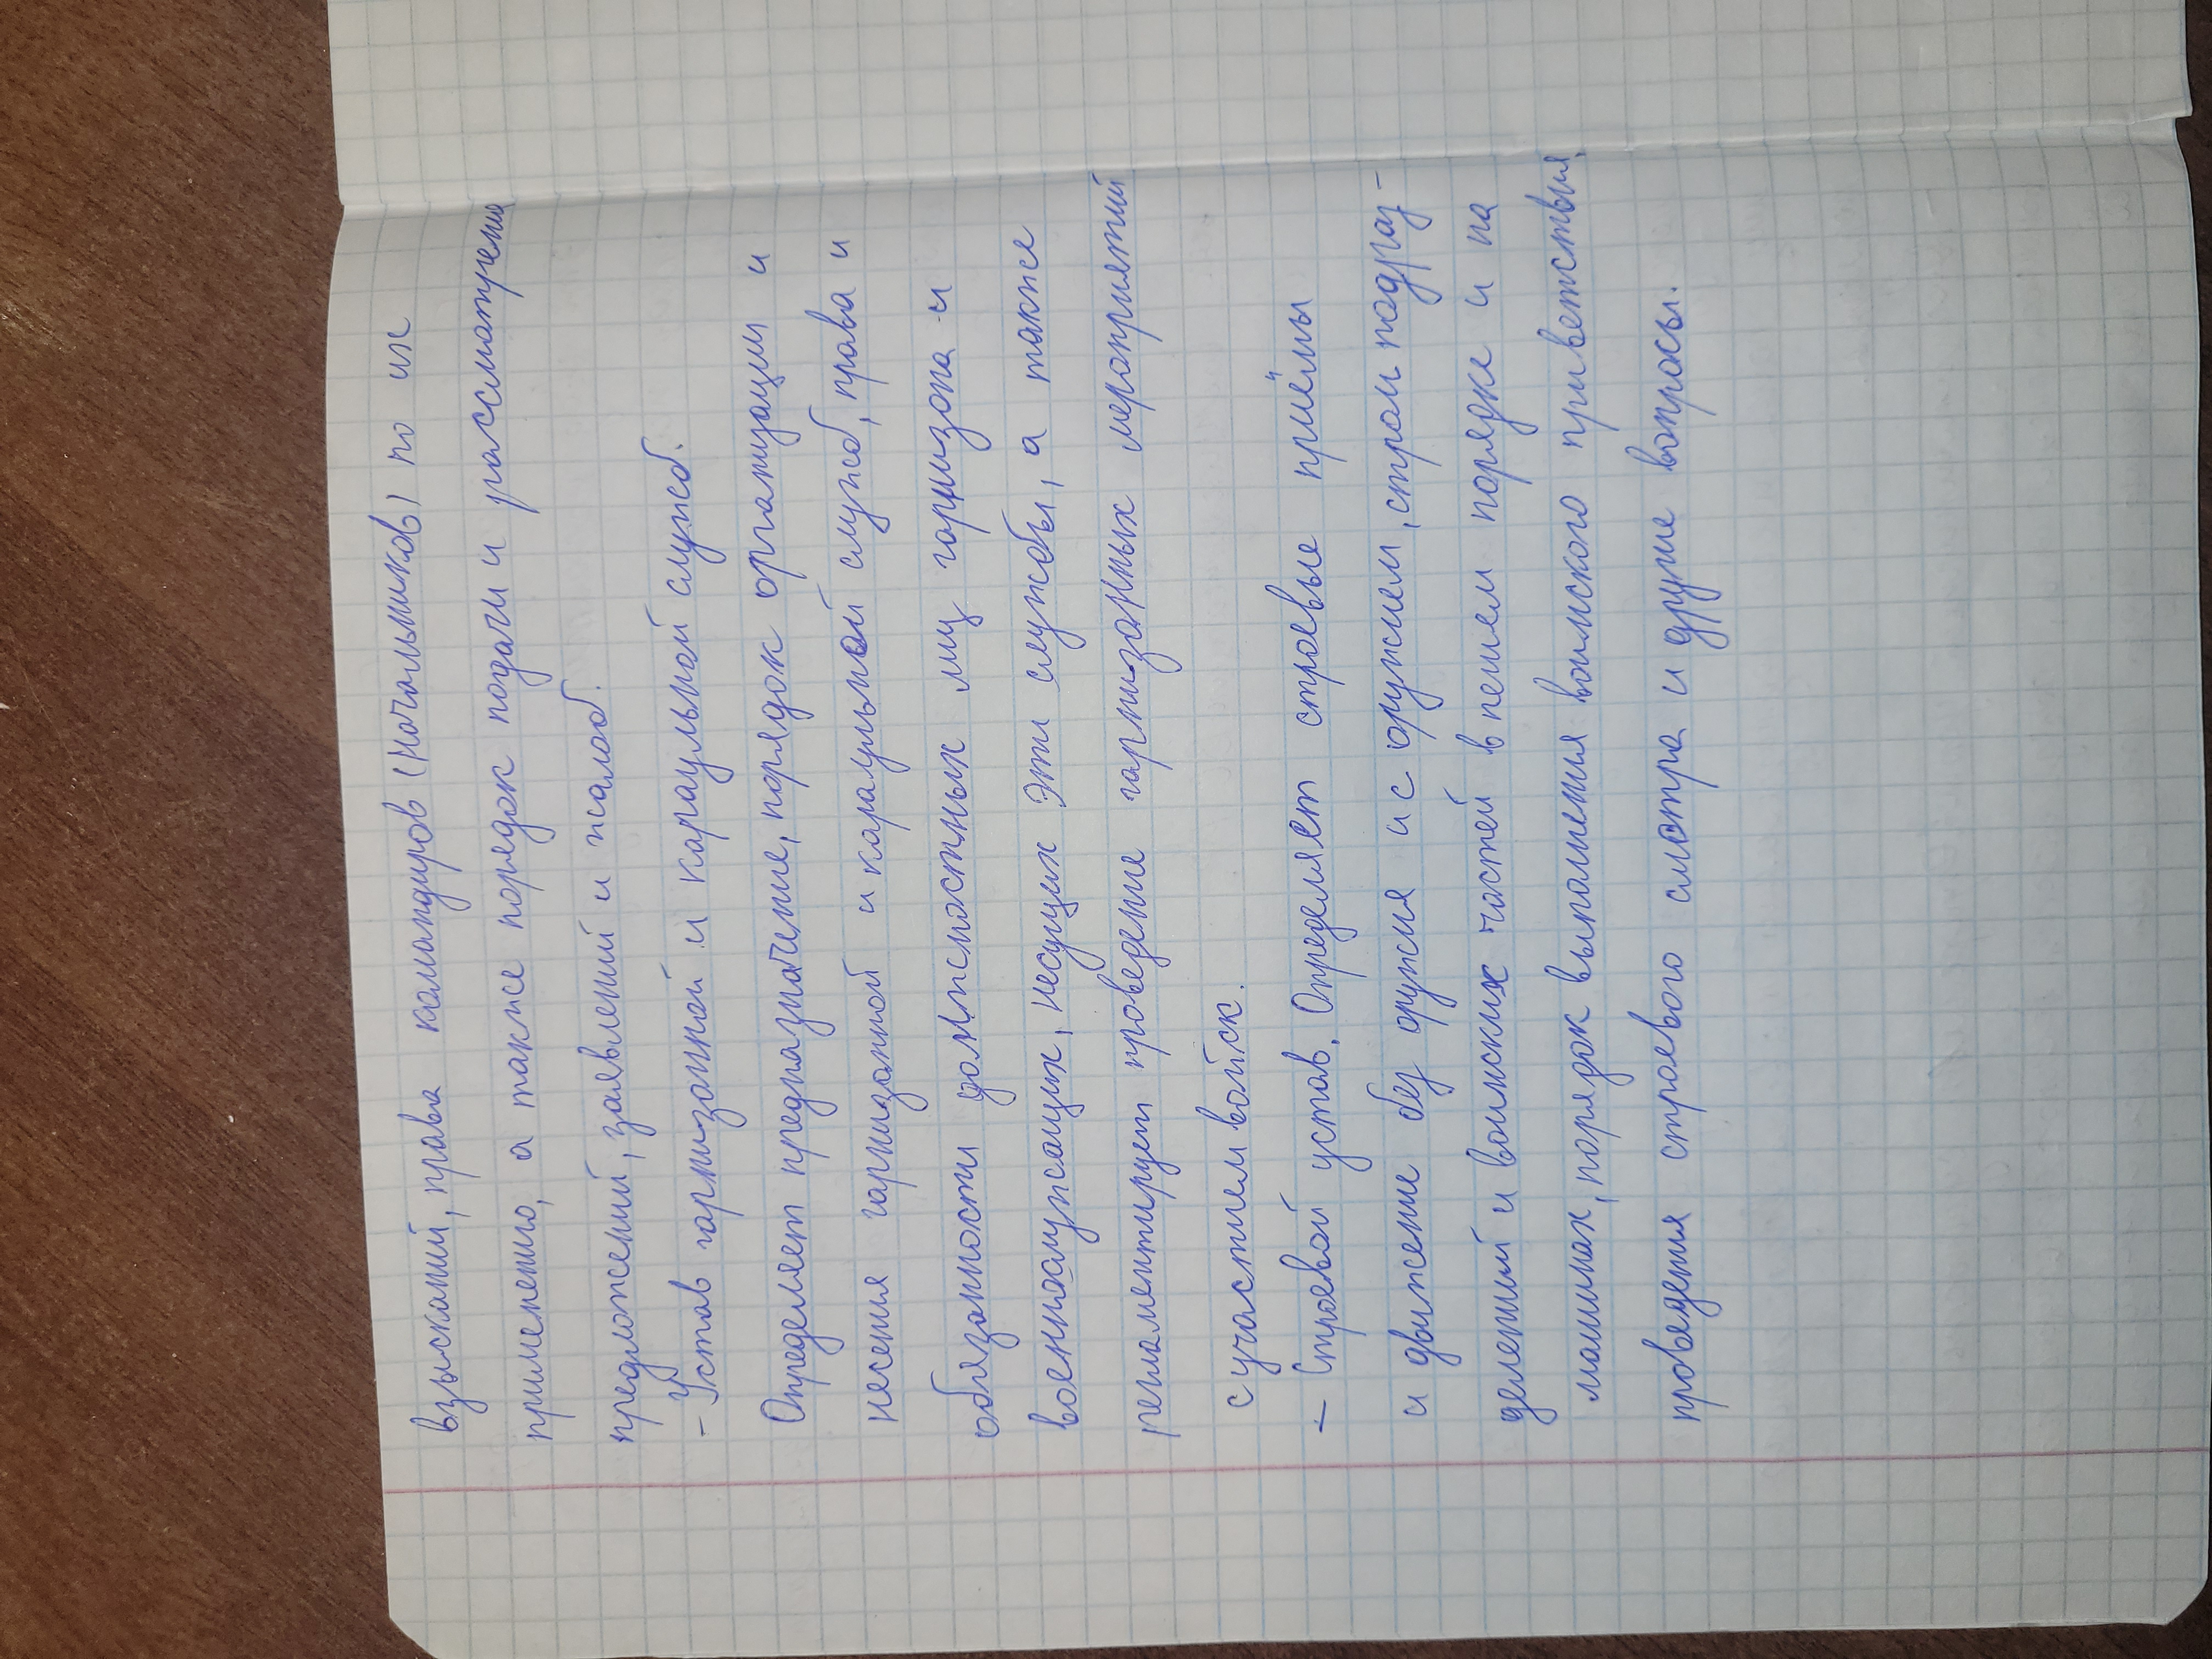 взысканий, права командиров (начальников) по их
применению, а также порядок подачи и рассмотрения
предложений, заявлений и жалоб.
- Устав гарнизонной и караульной служб.
Определяет предназначение, порядок организации и
несения гарнизонной и караульной служб, права и
обязанности должностных лиц гарнизона и
военнослужащих, несущих эти службы, а также
регламентирует проведение гарнизонных мероприятий
с участием войск.
- Строевой устав. Определяет строевые приёмы
и движение без оружия и с оружием, строи подраз-
делений и воинских частей в пешем порядке и на
машинах, порядок выполнения воинского приветствия,
проведения строевого смотра и другие вопросы.